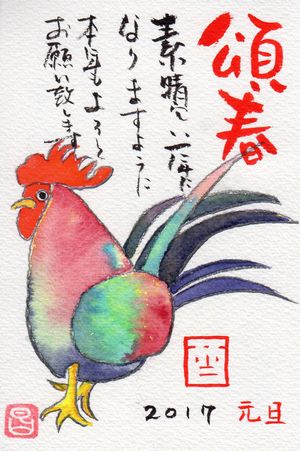 頌春
素晴しい一年に
なりますように
本年もよろしく
お願い致します
2017 元旦